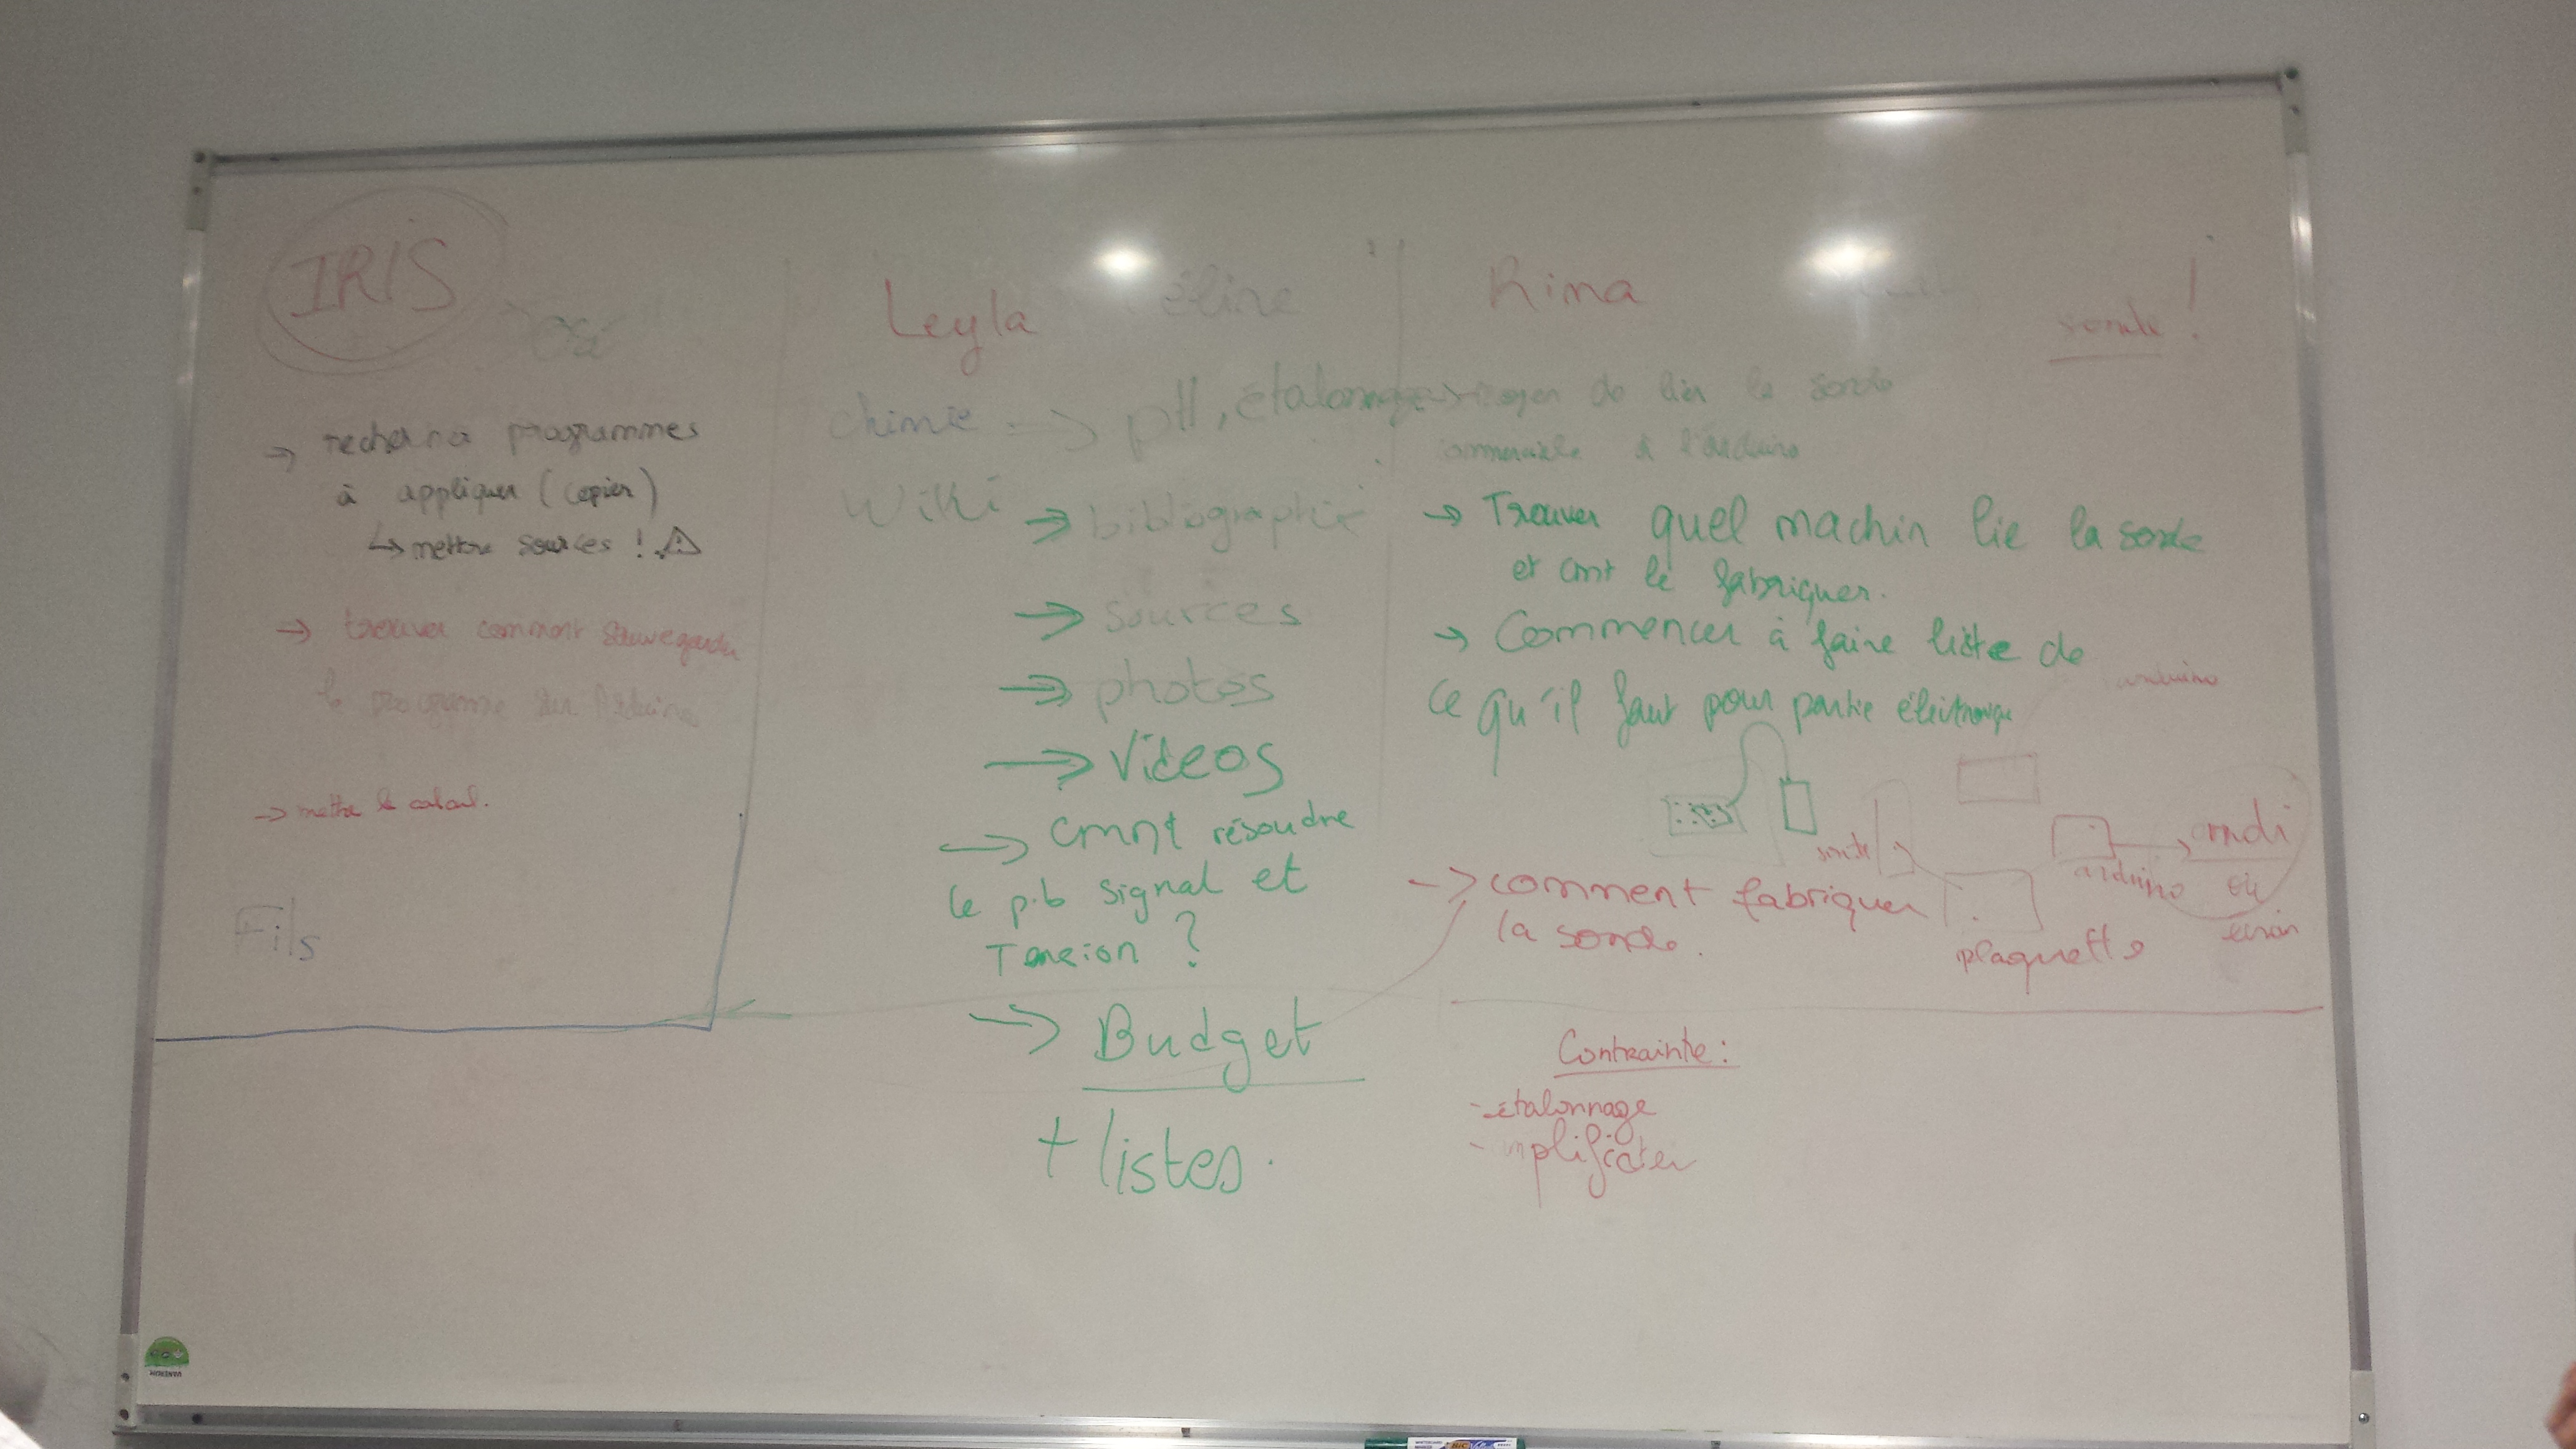 IRIS
→ recherna programmes
à appliquer (copier)
↳ mettre sources ! ⚠
→ trouver comment sauvegarder
le programme sur Arduino
→ mettre le calcul.
Fils
Leyla éline
chimie → pH, étalonnage
Wiki → bibliographie
→ sources
→ photos
→ Videos
→ cmnt résoudre
le p.b signal et
Tension ?
→ Budget
+ listes.
Rima
sonde !
moyen de lier la sonde
commerciale à l'arduino
→ Trouver quel machin lie la sonde
et cmt le fabriquer.
→ Commencer à faire liste de
ce qu'il faut pour partie électronique
arduino
→ comment fabriquer
la sonde.
sonde
plaquette
arduino
ordi
ou
écran
Contrainte :
- étalonnage
- mplificateur
VANERUM
BIC